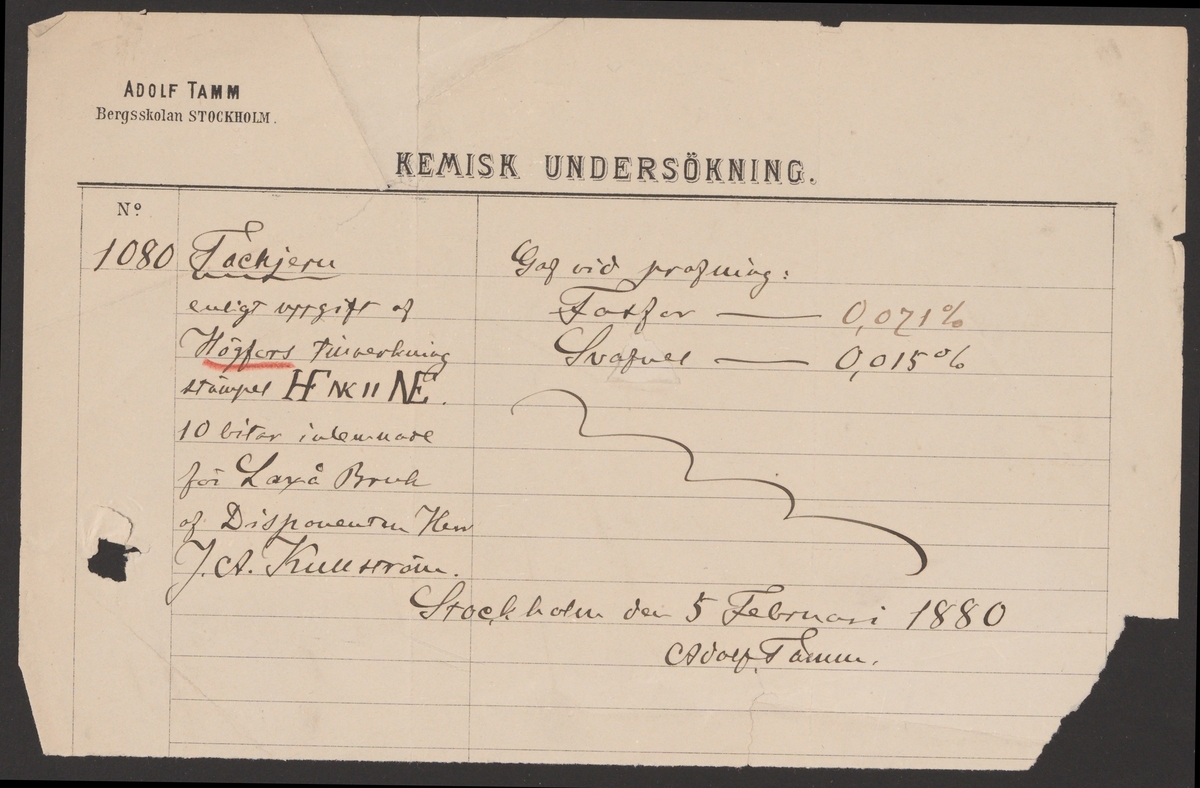 ADOLF TAMM
Bergsskolan STOCKHOLM.
KEMISK UNDERSÖKNING.
No
1080 Tackjern
enligt uppgift af
Högfors tillverkning
stämpel HF NK II NE.
10 bitar inlemnade
för Laxå Bruk
af Disponenten Herr
J. A. Kullström.
Gaf vid profning:
Fosfor — 0,071 %
Svafvel — 0,015 %
Stockholm den 5 Februari 1880
Adolf Tamm.